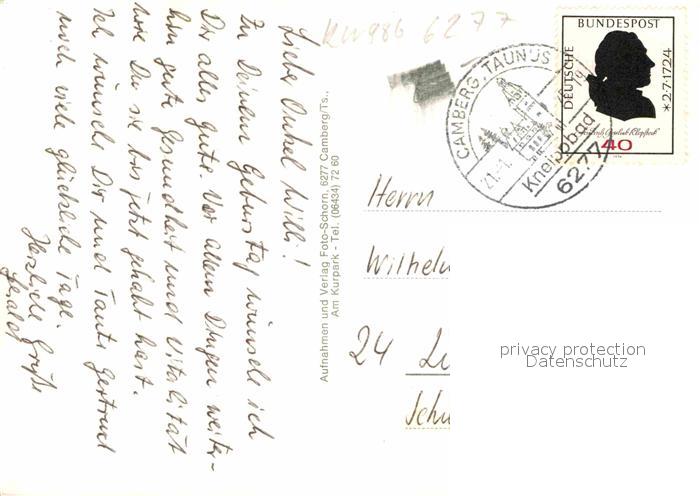 Lieber Onkel Willi!
Zu Deinem Geburtstag wünsche ich
Dir alles Gute. Vor allen Dingen weiter-
hin gute Gesundheit und Vitalität
wie Du sie bis jetzt gehabt hast.
Ich wünsche Dir und Tante Gertrud
noch viele glückliche Tage.
Herzliche Grüße
Gerald
Aufnahmen und Verlag Foto-Schorn, 6277 Camberg/Ts.,
Am Kurpark - Tel. (06434) 72 60
6277
CAMBERG, TAUNUS
21.-1.
Kneippbad
6277
DEUTSCHE
BUNDESPOST
* 2·7·1724
Friedrich Gottlieb Klopstock
40
Herrn
Wilhelm
24
privacy protection
Datenschutz